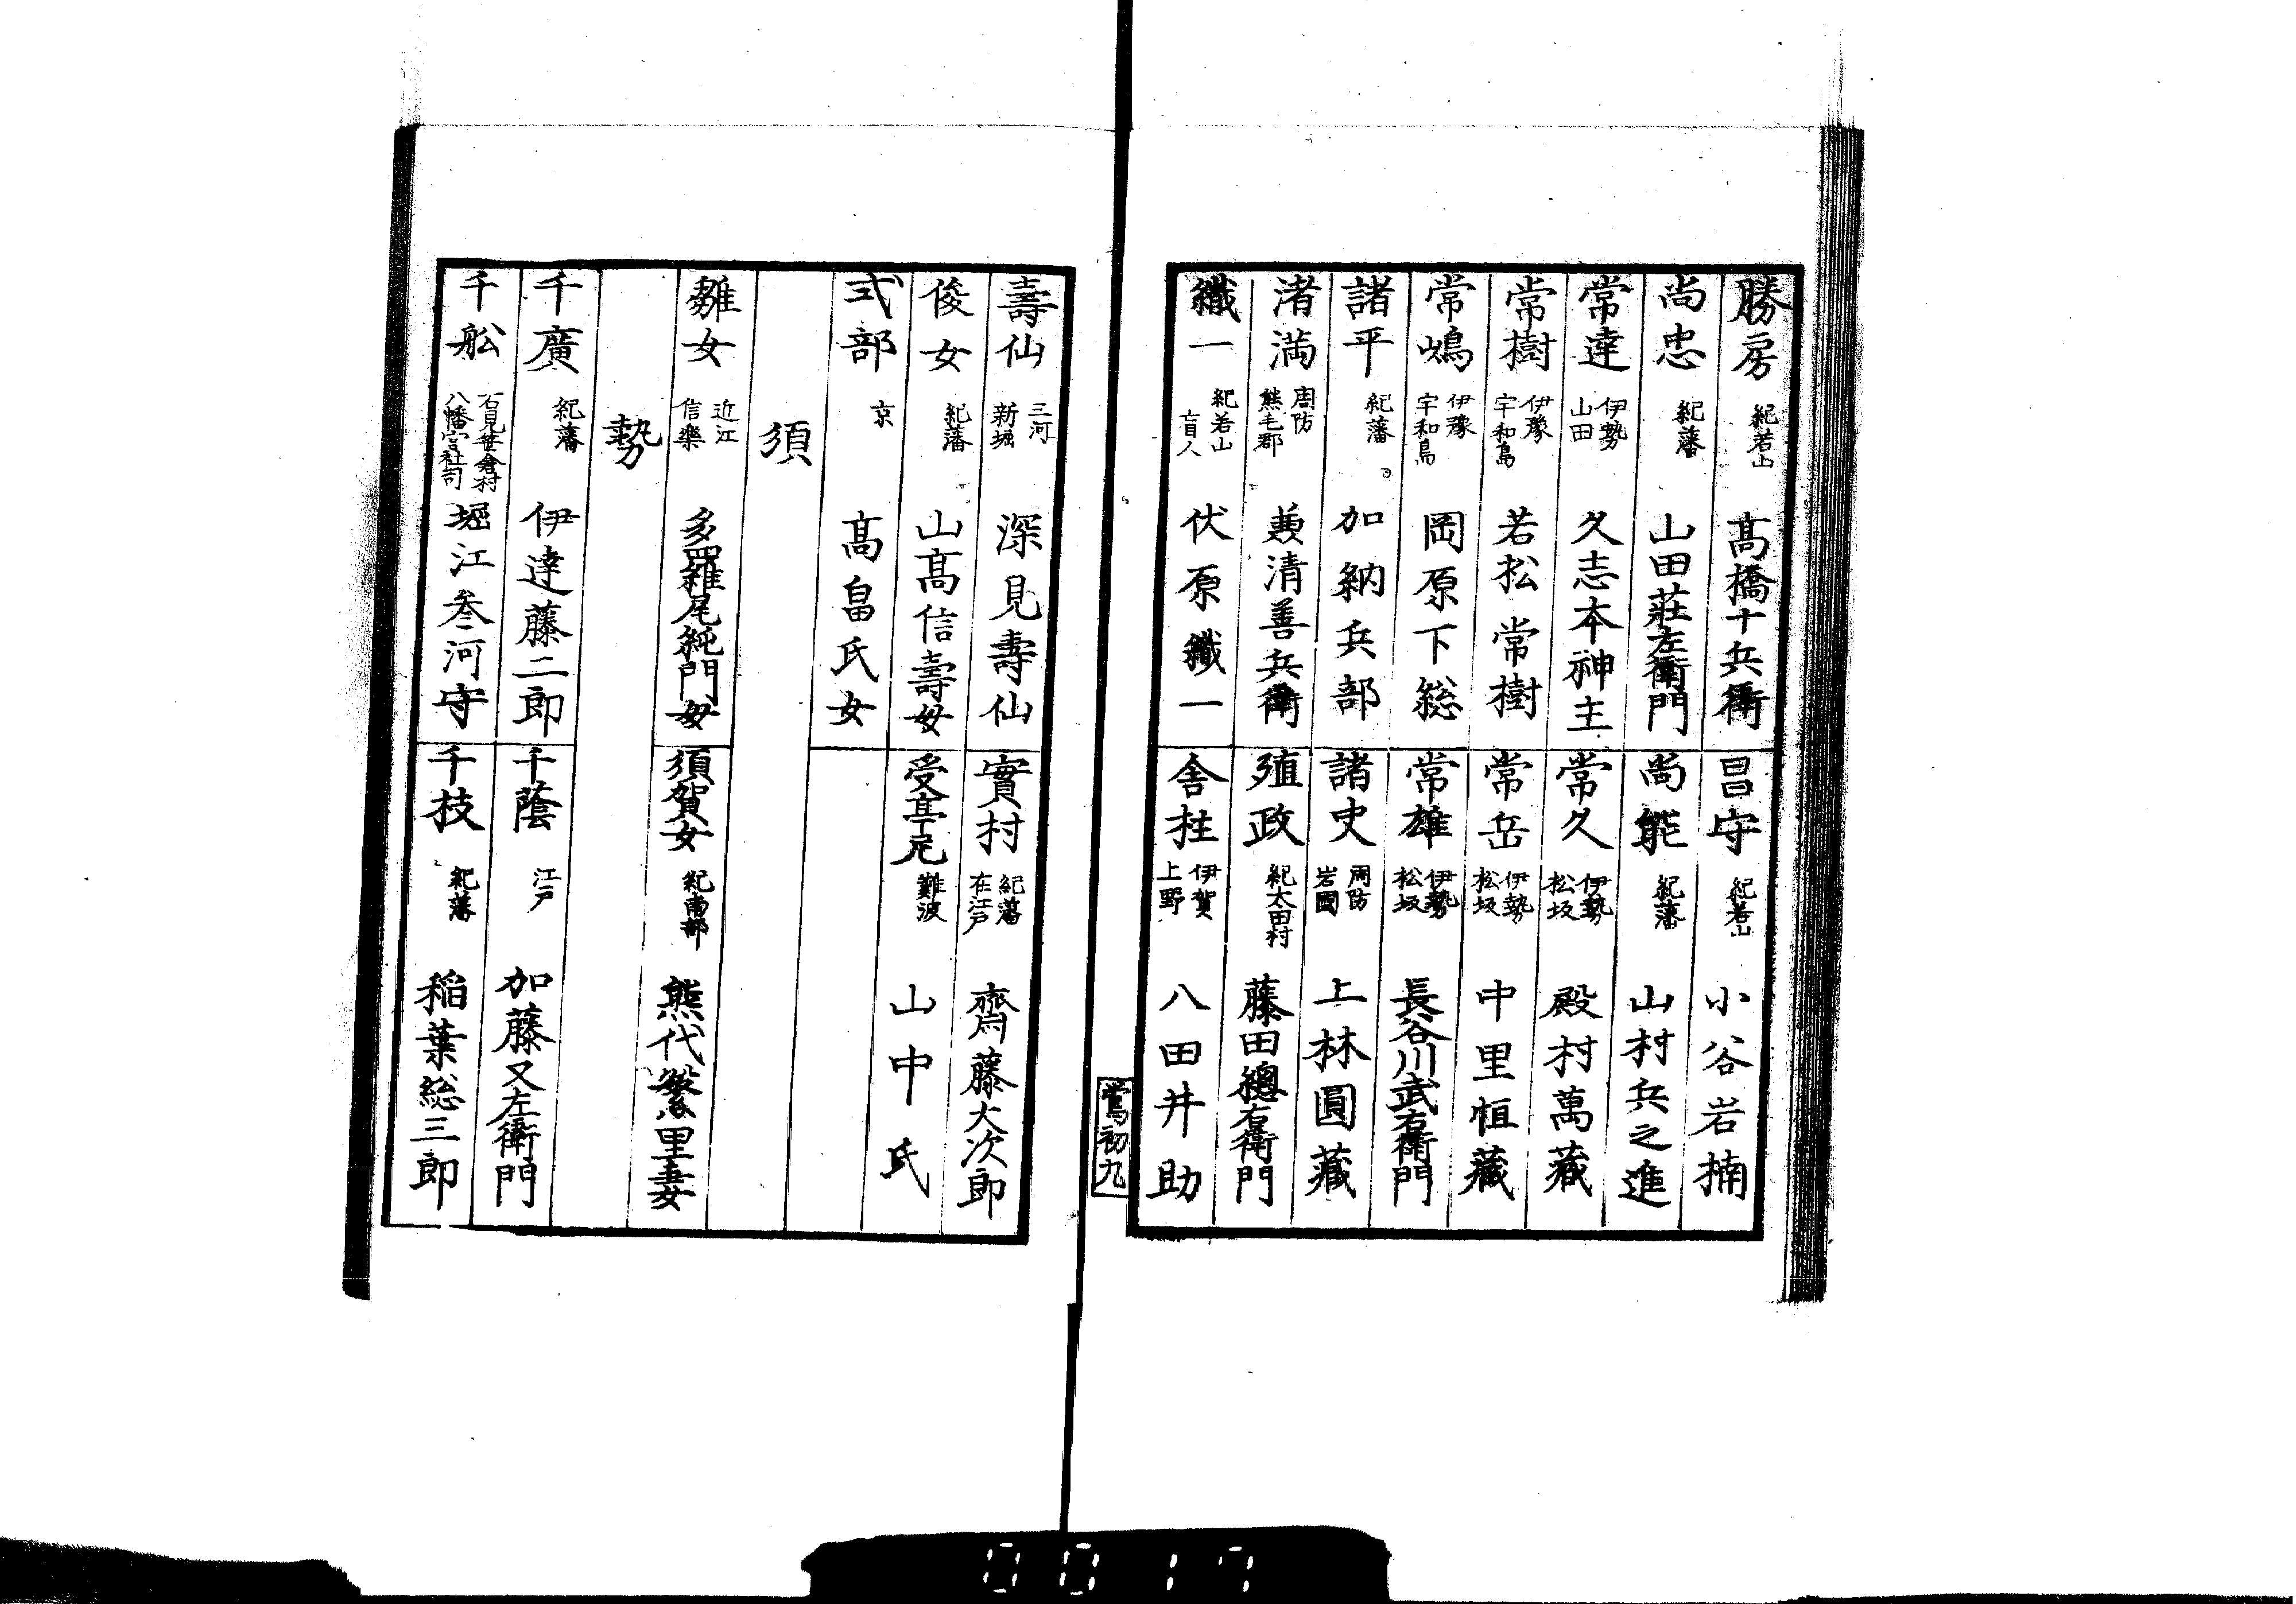 勝房 紀若山 髙橋十兵衛
尚忠 紀藩 山田莊左衛門
常達 伊勢山田 久志本神主
常樹 伊豫宇和島 若松常樹
常嶋 伊豫宇和島 岡原下総
諸平 紀藩 加納兵部
渚満 周防熊毛郡 兼清善兵衛
纎一 紀若山盲人 伏原纎一
昌守 紀若山 小谷岩楠
尚能 紀藩 山村兵之進
常久 伊勢松坂 殿村萬藏
常岳 伊勢松坂 中里恒藏
常雄 伊勢松坂 長谷川武右衛門
諸史 周防岩國 上林圓藏
殖政 紀太田村 藤田總右衛門
舎柱 伊賀上野 八田井助
鴬初九
壽仙 三河新堀 深見壽仙
俊女 紀藩 山髙信壽母
式部 京 髙畠氏女
實村 紀藩在江戸 齋藤大次郎
受亭尼 難波 山中氏
須
雛女 近江信樂 多羅尾純門母
須賀女 紀南部 熊代繁里妻
勢
千廣 紀藩 伊達藤二郎
千舩 石見笹倉村八幡宮社司 堀江叄河守
千蔭 江戸 加藤又左衛門
千枝 紀藩 稲葉総三郎
0017